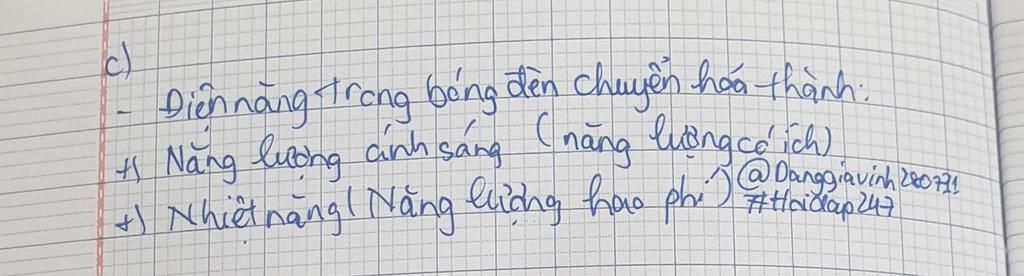 c)
- Điện năng trong bóng đèn chuyển hoá thành:
+) Năng lượng ánh sáng (năng lượng có ích)
+) Nhiệt năng (Năng lượng hao phí) @Danggiavinh280731
#Hoidap247